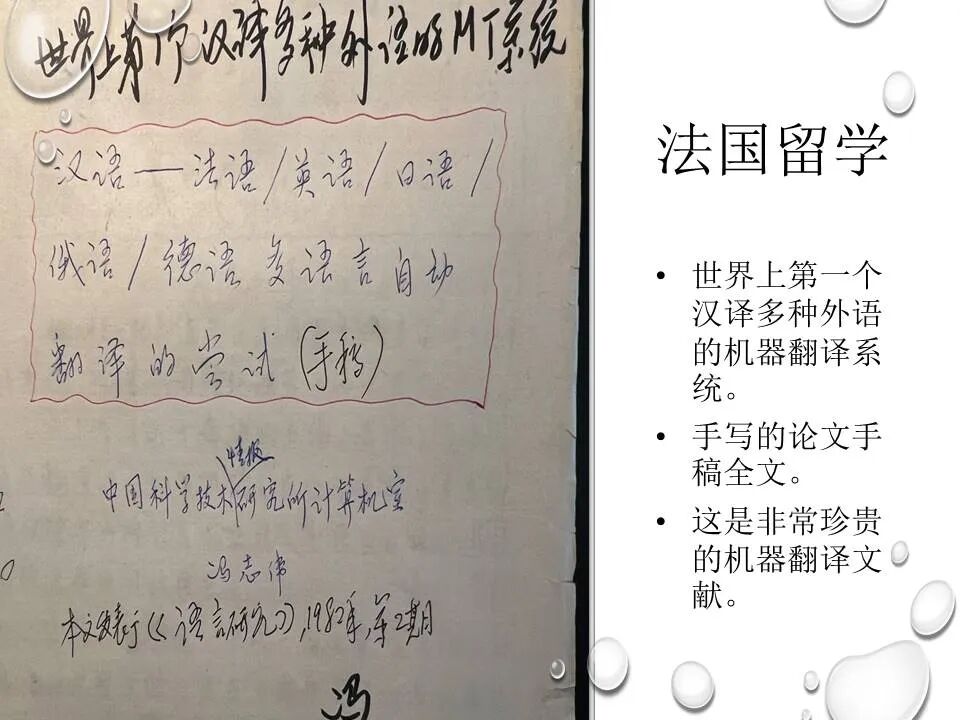 世界上第一个汉译多种外语的MT系统
汉语——法语/英语/日语/
俄语/德语多语言自动
翻译的尝试(手稿)
情报
中国科学技术研究所计算机室
冯志伟
本文发表于《语言研究》,1982年,第2期
冯
法国留学
• 世界上第一个
汉译多种外语
的机器翻译系
统。
• 手写的论文手
稿全文。
• 这是非常珍贵
的机器翻译文
献。